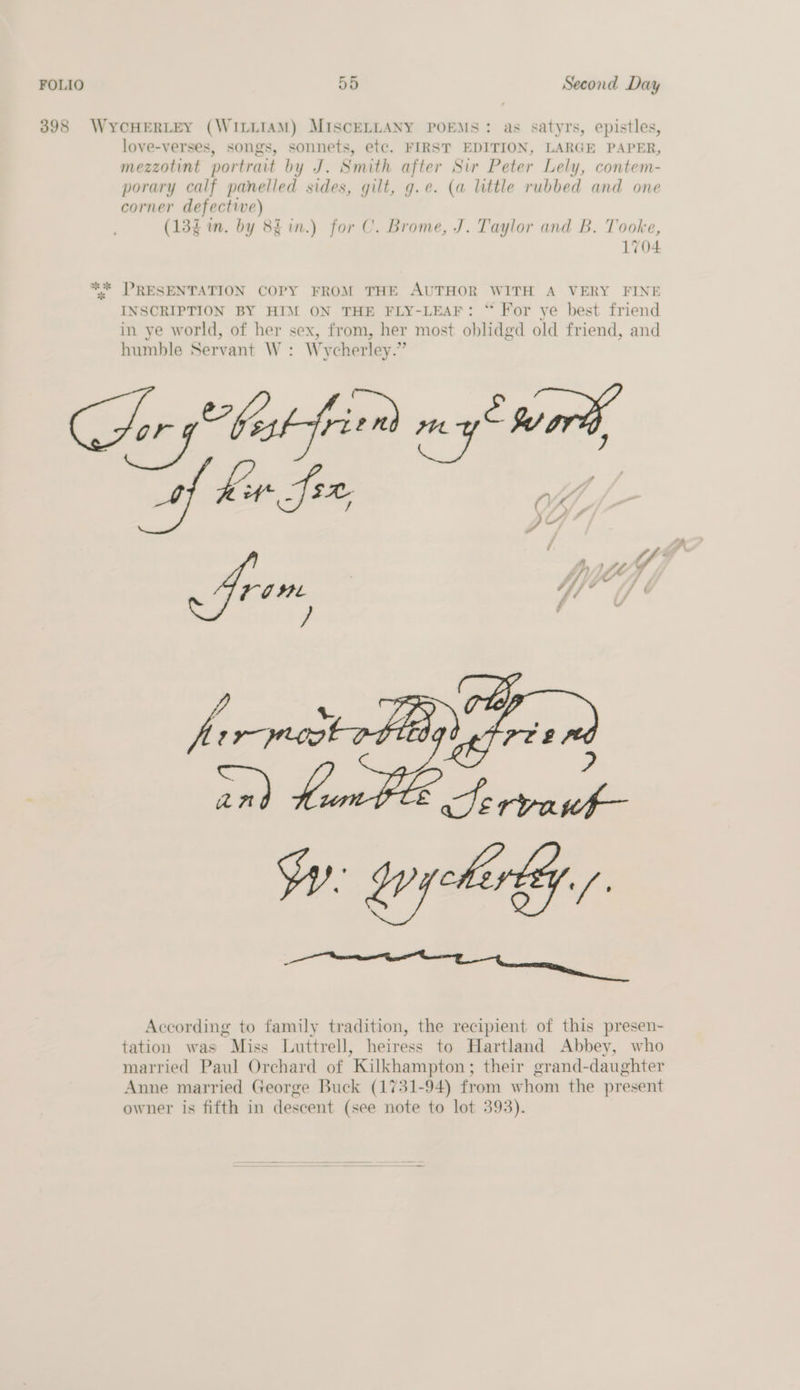 FOLIO 55 Second Day
398 WYCHERLEY (WILLIAM) MISCELLANY POEMS: as satyrs, epistles,
love-verses, songs, sonnets, etc. FIRST EDITION, LARGE PAPER,
mezzotint portrait by J. Smith after Sir Peter Lely, contem-
porary calf panelled sides, gilt, g.e. (a little rubbed and one
corner defective)
(13¾ in. by 8¾ in.) for C. Brome, J. Taylor and B. Tooke,
1704
*** PRESENTATION COPY FROM THE AUTHOR WITH A VERY FINE
INSCRIPTION BY HIM ON THE FLY-LEAF: “ For ye best friend
in ye world, of her sex, from, her most oblidgd old friend, and
humble Servant W: Wycherley.”
For ye best friend in ye world,
of her sex,
from,
her most oblidgd old friend
and humble Servant
W: Wycherley./.
According to family tradition, the recipient of this presen-
tation was Miss Luttrell, heiress to Hartland Abbey, who
married Paul Orchard of Kilkhampton; their grand-daughter
Anne married George Buck (1731-94) from whom the present
owner is fifth in descent (see note to lot 393).